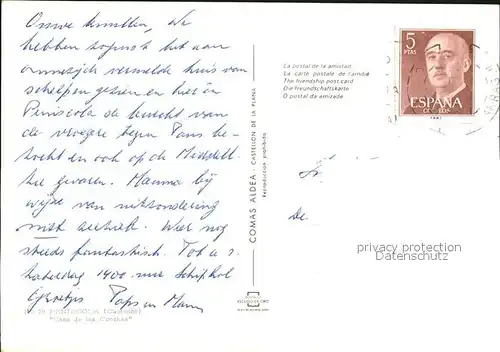 Onze kunstten, We
hebben zojuist het aan
ommezijde vermelde huis van
schelpen gezien en hier in
Peniscola de burcht van
de vroegere tegen Paus be-
zocht en ook op de Middell.
Zee gevaren. Mamma bij
wijze van uitzondering
niet zeeziek. Weer nog
steeds fantastisch. Tot a.s.
zaterdag 1400 uur Schiphol
Groetjes Paps en Mam
PEÑISCOLA (Castellón)
"Casa de las Conchas"
COMAS ALDEA - CASTELLON DE LA PLANA
Reproducción prohibida
ESCUDO DE ORO
La postal de la amistad
La carte postale de l'amitié
The friendship post card
Die Freundschaftskarte
O postal da amizade
5
PTAS
ESPAÑA
CORREOS
De
privacy protection
Datenschutz